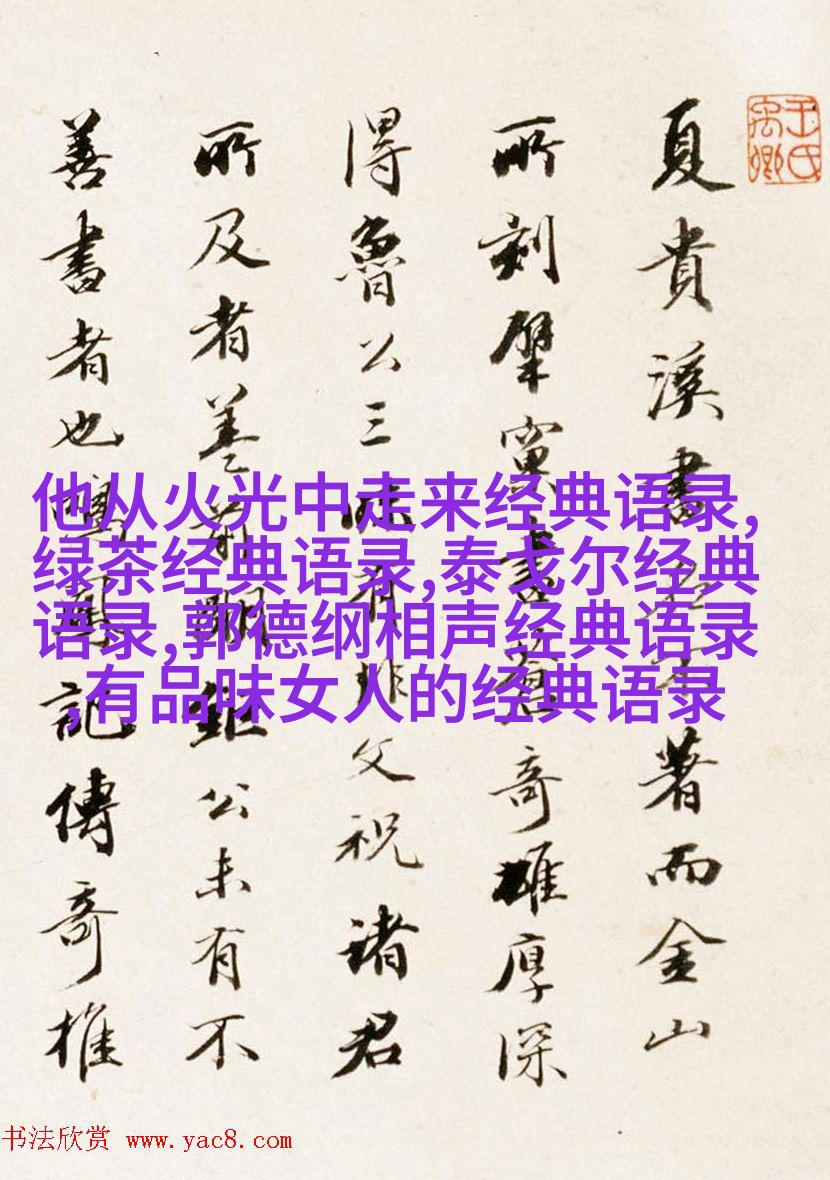 王氏禹卿
夏貴溪書著而金山
所刻擘窠書奇雄厚深
得魯公三昧有非文祝諸君
所及者蓋前明鉅公未有不
善書者也鳴鳳記傳奇推
他从火光中走来经典语录,
绿茶经典语录,泰戈尔经典
语录,郭德纲相声经典语录
,有品味女人的经典语录
书法欣赏 www.yac8.com